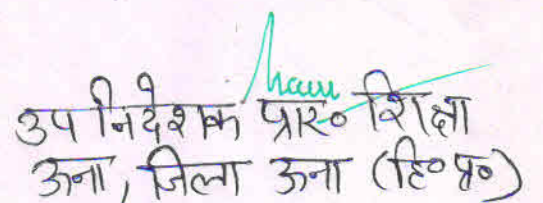 उप निदेशक प्रार० शिक्षा
ऊना, जिला ऊना (हि० प्र०)